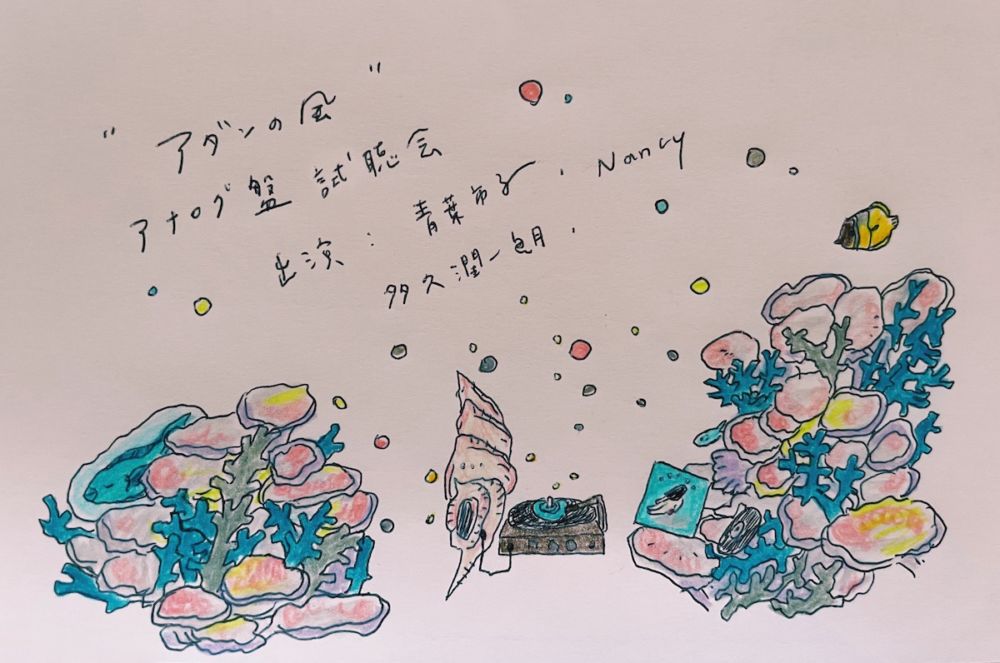 "アダンの風"
アナログ盤 試聴会
出演： 青葉市子, Nancy
多久潤一朗,